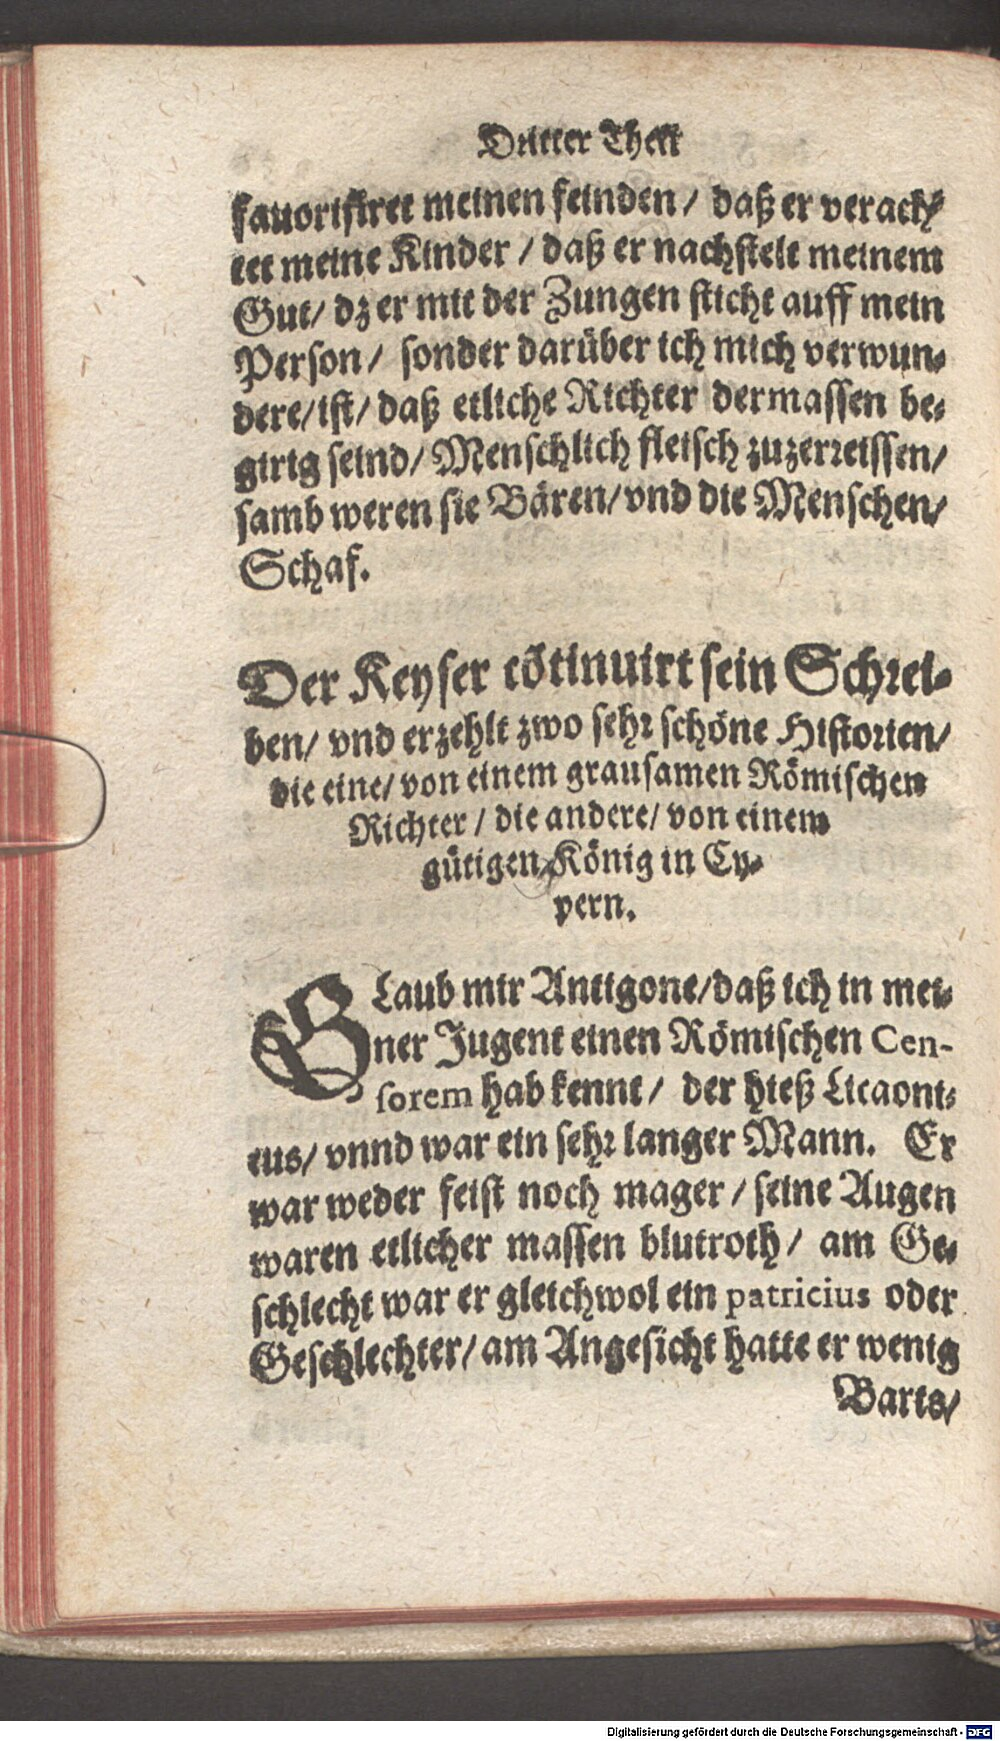 Dritter Theil
fauorisiret meinen feinden / daß er verach-
tet meine Kinder / daß er nachstelt meinem
Gut / dz er mit der Zungen sticht auff mein
Person / sonder darüber ich mich verwun-
dere / ist / daß etliche Richter dermassen be-
girig seind / Menschlich fleisch zuzerreissen /
samb weren sie Bären / vnd die Menschen /
Schaf.
Der Keyser cõtinuirt sein Schrei-
ben / vnd erzehlt zwo sehr schöne Historien /
die eine / von einem grausamen Römischen
Richter / die andere / von einem
gütigen König in Cy-
pern.
Glaub mir Antigone / daß ich in mei-
ner Jugent einen Römischen Cen-
sorem hab kennt / der hieß Licaoni-
cus / vnnd war ein sehr langer Mann. Er
war weder feist noch mager / seine Augen
waren etlicher massen blutroth / am Ge-
schlecht war er gleichwol ein patricius oder
Geschlechter / am Angesicht hatte er wenig
Barts /
Digitalisierung gefördert durch die Deutsche Forschungsgemeinschaft - DFG